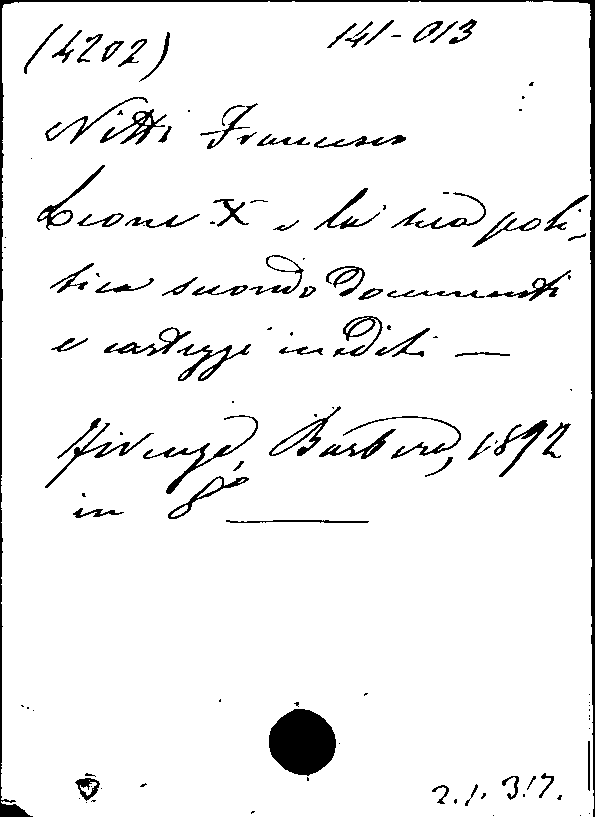 (4202) 141-013
Nitti Francesco
Leone X e la sua poli-
tica secondo documenti
e carteggi inediti —
Firenze, Barbera, 1892
in 8°
2.1.317.